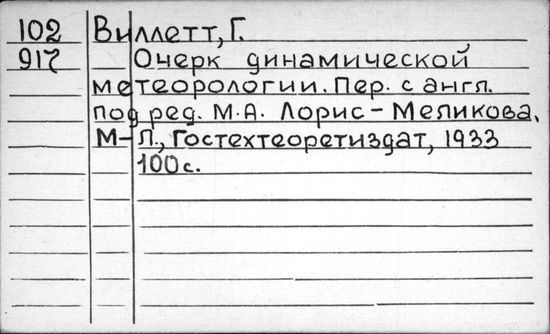 102 Виллетт, Г.
917 Очерк динамической
метеорологии. Пер. с англ.
под ред. М.А. Лорис-Меликова.
М-Л., Гостехтеоретиздат, 1933
100 с.